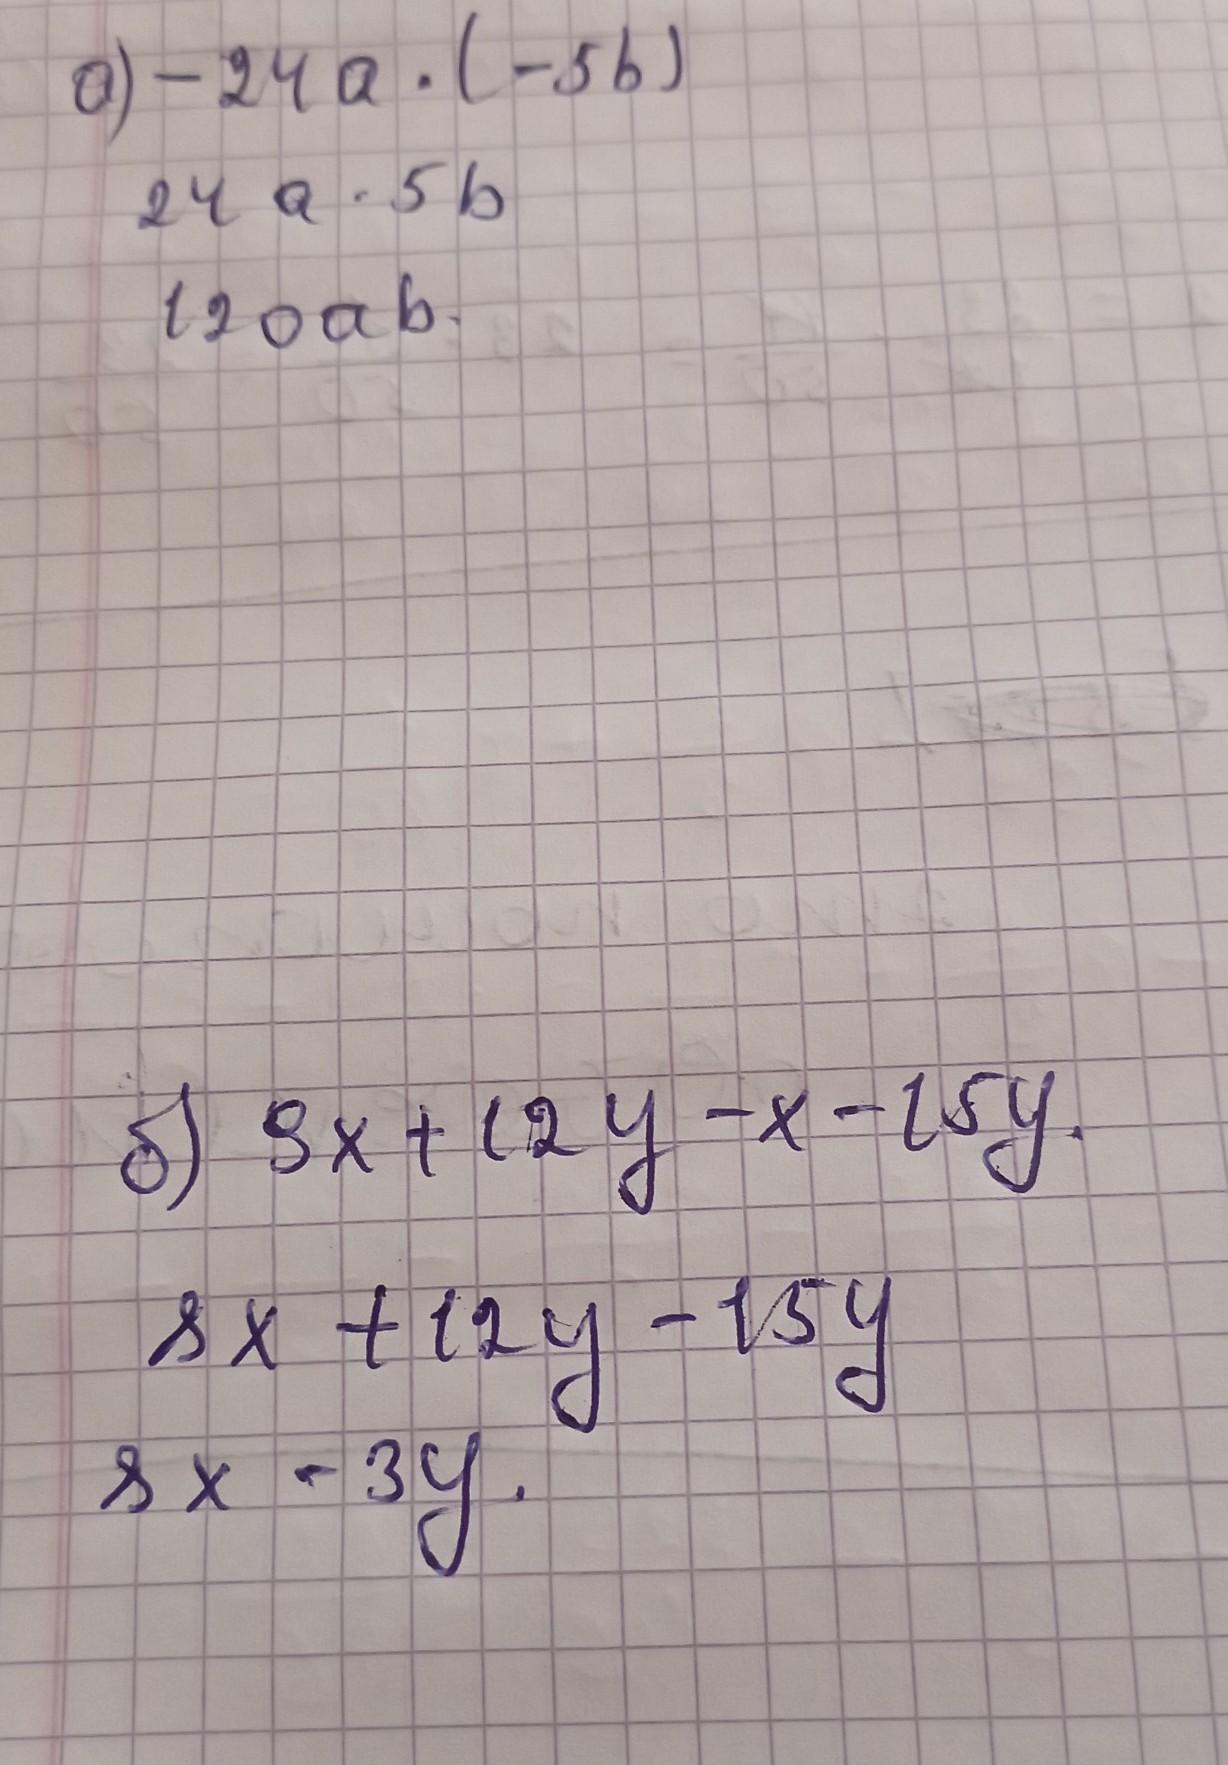 а) - 24 a · (-5b)
24 a · 5b
120ab.
б) 9x + 12y - x - 15y.
8x + 12y - 15y
8x - 3y.